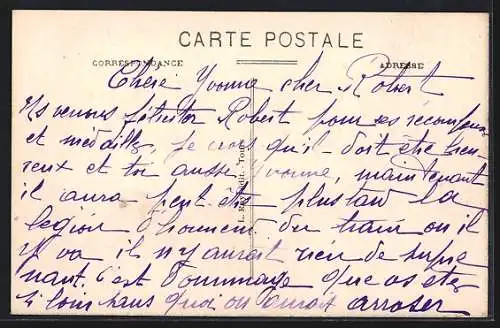 CARTE POSTALE
CORRESPONDANCE
ADRESSE
Chère Yvonne cher Robert
Ns venons féliciter Robert pour ses récompenses
et médailles, je crois qu'il doit être heu-
reux et toi aussi Yvonne, maintenant
il aura peut être plus tard la
légion d'honneur. Du train où il
y va il n'y aurait rien de surpre
nant. C'est dommage que vs êtes
si loin sans quoi on aurait arroser